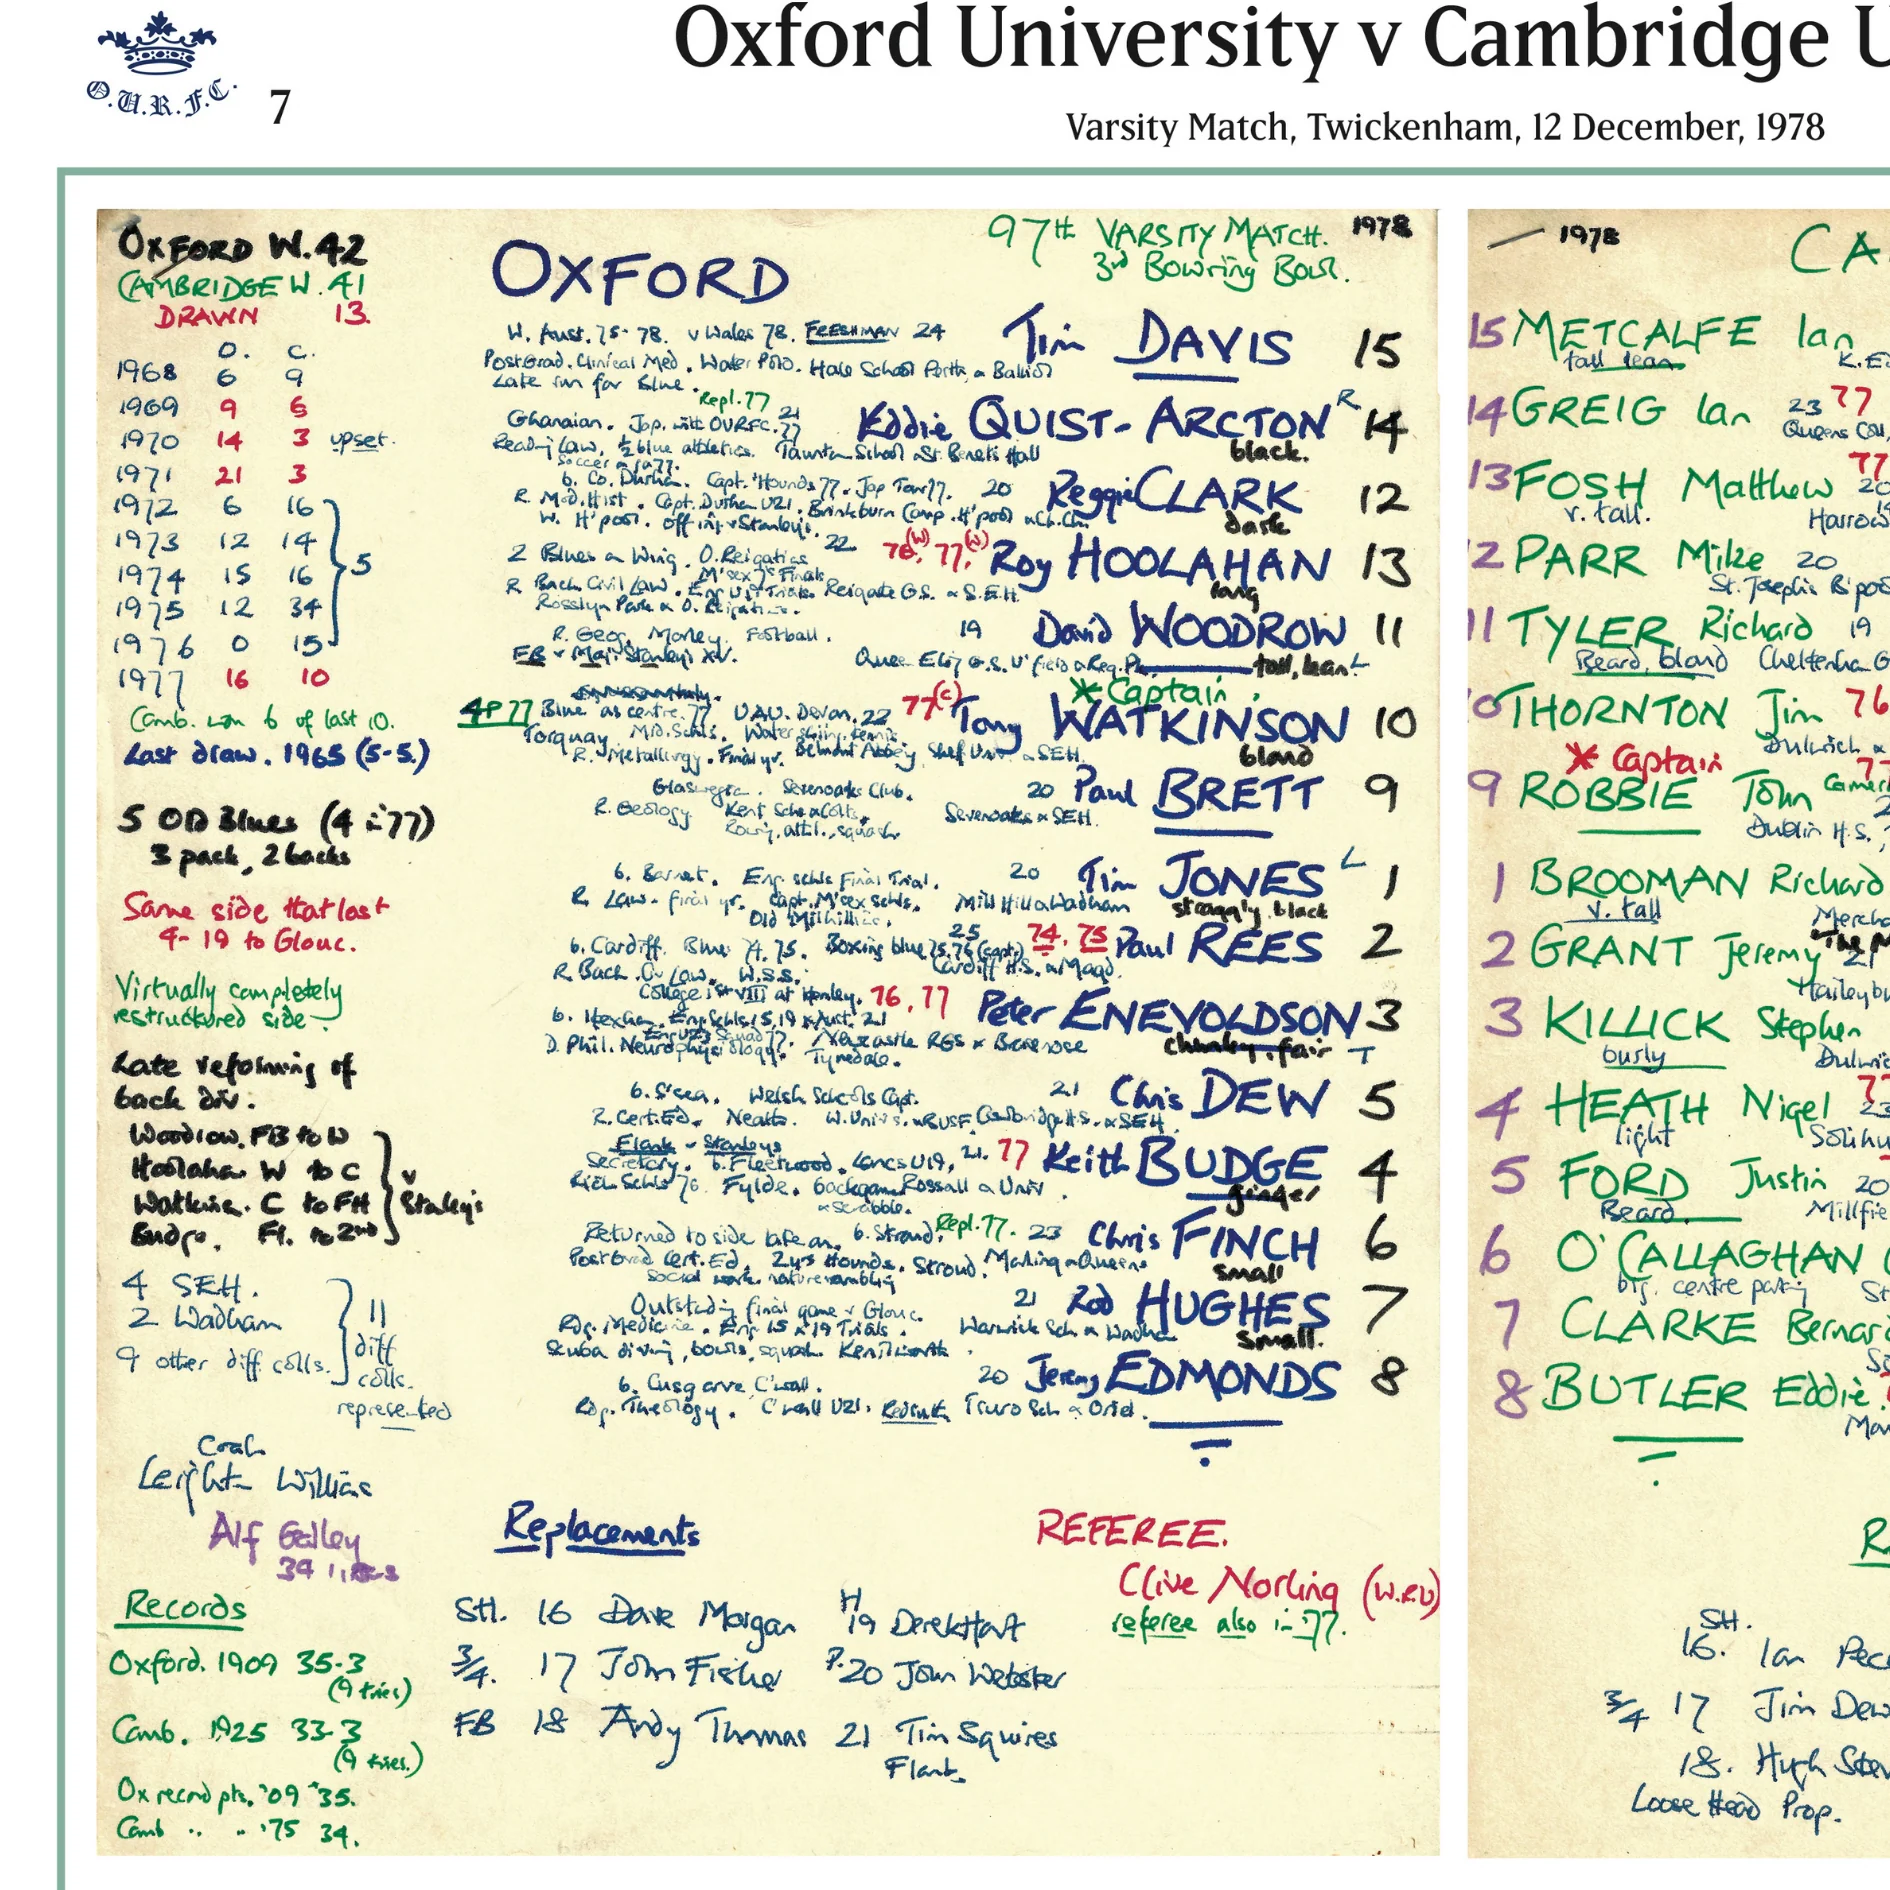 O.U.R.F.C.
7
Oxford University v Cambridge U
Varsity Match, Twickenham, 12 December, 1978
OXFORD W. 42
CAMBRIDGE W. 41
DRAWN 13.
O. C.
1968 6 9
1969 9 6
1970 14 3 upset.
1971 21 3
1972 6 16
1973 12 14
1974 15 16
1975 12 34
1976 0 15
5
1977 16 10
Camb. won 6 of last 10.
Last draw. 1965 (5-5.)
5 OD Blues (4 in 77)
3 pack, 2 backs
Same side that lost
4-19 to Glouc.
Virtually completely
restructured side
Late reforming of
back div:
Woodrow. FB to W
Hoolahan W to C
Watkins. C to FH
Budge. Fl. to 2nd
v Stanley's
4 SEH.
2 Wadham
9 other diff colls.
11
diff
colls.
represented
Coach
Leighton Williams
Alf Galley
Records
Oxford. 1909 35-3
(9 tries)
Camb. 1925 33-3
(9 tries.)
Ox record pts. '09 35.
Camb .. .. '75 34.
97th VARSITY MATCH. 1978
3rd Bowring Bowl.
OXFORD
W. Aust. 75-78. v Wales 78. FRESHMAN 24
Tim DAVIS 15
PostGrad. Clinical Med. Water Polo. Hale School Perth & Balliol
Late run for Blue.
Repl. 77
Ghanaian. Jap. with OURFC. 77 21
Eddie QUIST-ARCTON R 14
black.
Reading Law, ½ blue athletics. Taunton School & St. Benets Hall
Soccer
b. Co. Durham. Capt. 'Hounds 77. Jap Tour 77. 20
Reggie CLARK 12
dark
R. Mod. Hist. Capt. Durham U21. Brinkburn Comp. H'pool & Ch.Ch.
W. H'pool. off inj. v Stanley's.
2 Blues on Wing. O. Reigatians 22 76(W), 77(W)
Roy HOOLAHAN 13
M'sex 75 Finals
R. Bach. Civil Law. Eng U23 Trials. Reigate G.S. & S.E.H.
Rosslyn Park & O. Reigatians.
R. Geog. Morley. Football. 19
David WOODROW 11
tall, lean L
FB v Maj. Stanley's XV.
Queen Eliz G.S. W'field
* Captain.
4P 77 Blue as centre. 77. UAU. Devon. 22 77(C)
Tony WATKINSON 10
bland
Torquay. Mid. Schls. Water skiing, tennis.
R. Metallurgy. Final yr. Belmont Abbey, Shef Univ & SEH.
Glaswegian. Sevenoaks Club. 20
Paul BRETT 9
R. Geology Kent Schs & Colts. Sevenoaks & SEH.
Rowing, athl., squash
b. Barnet. Eng. schls Final Trial. 20
Tim JONES L 1
straggly black
R. Law. final yr. Capt. M'sex schls. Mill Hill & Wadham
Old Millhillians.
b. Cardiff. Blue 74. 75. Boxing blue 75.76 (capt.) 25 74. 75
Paul REES 2
R. Bach. Civ Law. W.S.S. Cardiff H.S. & Magd.
College 1st VIII at Henley. 76, 77
Peter ENEVOLDSON 3
chunky, fair T
b. Hexham. Eng Schls 15, 19 v Aust. 21
Eng U23 Squad 77.
D. Phil. Neurophysiology. Newcastle RGS &
Tynedale.
b. S'sea. Welsh Schools Capt. 21
Chris DEW 5
R. Cert. Ed. Neath. W. Univs. & BUSF. Cowbridge H.S. & SEH.
Flank v Stanleys
Secretary. b. Fleetwood. Lancs U19, 21. 77
Keith BUDGE 4
ginger
Rich Schls 76. Fylde. backgamm Rossall & Univ
& scrabble.
Returned to side late on. b. Stroud. Repl. 77. 23
Chris FINCH 6
small
PostGrad Cert. Ed. 2 yrs Hounds. Stroud. Marling & Queens
social work. nature rambling
Outstanding final game v Glouc. 21
Rod HUGHES 7
small.
Rdg. Medicine. Eng 15 & 19 Trials. Warwick Sch & Wadham
Scuba diving, bowls, squash. Kenilworth
b. Cusgarve C'wall. 20
Jeremy EDMONDS 8
Rdg. Theology. C'wall U21. Redruth. Truro Sch & Oriel.
Replacements
SH. 16 Dave Morgan
3/4. 17 John Fisher
FB 18 Andy Thomas
H 19 Derek Hart
P. 20 John Webster
21 Tim Squires
Flank.
REFEREE.
Clive Norling (W.R.U)
referee also in 77.
1978
CA
15 METCALFE Ian
tall lean K.E
14 GREIG Ian 23 77
Queens Coll,
13 FOSH Matthew 77 20
v. tall. Harrow
12 PARR Mike 20
St. Joseph's B'pool
11 TYLER Richard 19
Beard, bland Cheltenham G
10 THORNTON Jim 76
Dulwich &
* Captain 77
9 ROBBIE John
Dublin H.S.,
1 BROOMAN Richard
v. tall Mercha
2 GRANT Jeremy 21
Haileybu
3 KILLICK Stephen
burly Dulwic
4 HEATH Nigel 77 23
light Solihu
5 FORD Justin 20
Beard. Millfie
6 O'CALLAGHAN
big. centre parting St
7 CLARKE Bernar
8 BUTLER Eddie.
Mon
R
SH.
16. Ian Pec
3/4 17 Jim Dew
18. Hugh Stev
Loose Head Prop.